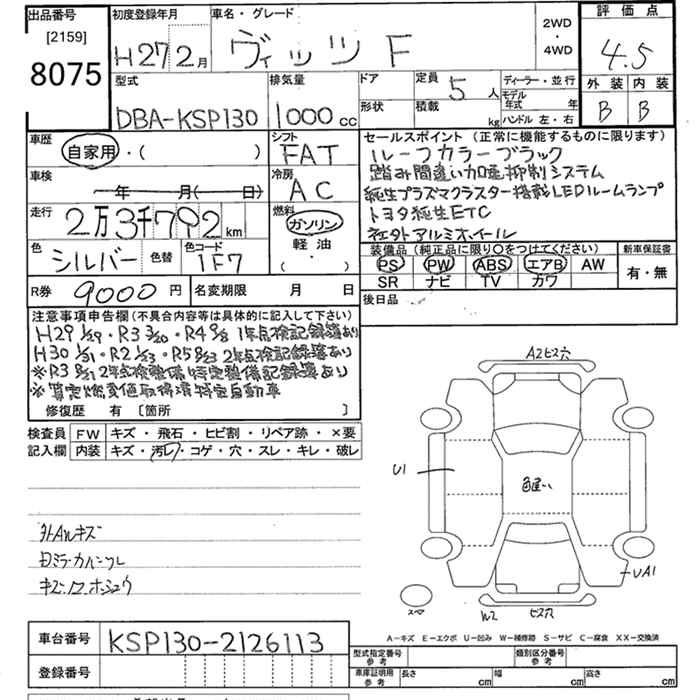 出品番号 初度登録年月 車名・グレード 2WD・4WD 評価点
[2159]
8075 H27 2月 ヴィッツ F 4.5
型式 排気量 ドア 定員 5人 ディーラー・並行 外装 内装
DBA-KSP130 1000cc 形状 積載 kg モデル年式 年 B B
ハンドル 左・右
車歴 自家用・( ) シフト FAT
車検 年 月( 日) 冷房 AC
走行 2万3千792km 燃料 ガソリン
軽油
・( )
色 シルバー 色替 色コード 1F7
R券 9000円 名変期限 月 日
セールスポイント(正常に機能するものに限ります)
ルーフカラーブラック
踏み間違い加速抑制システム
純生プラズマクラスター搭載LEDルームランプ
トヨタ純生ETC
社外アルミホイール
装備品(純正品に限り○をつけてください) 新車保証書
PS PW ABS エアB AW 有・無
SR ナビ TV カワ
後日品
注意事項申告欄(不具合内容等は具体的に記入して下さい)
H29 1/29・R3 3/20・R4 9/8 1年点検記録簿あり
H30 1/31・R2 1/23・R5 8/23 2年点検記録簿あり
※R3 8/31 2年点検整備 特定整備記録簿あり
※算定燃費値取得済特定自動車
修復歴 有 [箇所 ]
検査員 FW キズ・飛石・ヒビ割・リペア跡・×要
記入欄 内装 キズ・汚レ・コゲ・穴・スレ・キレ・破レ
外AWキズ
キズ・ワレ・ホシュウ
A2 ビス穴
U1
色違い
UA1
スマ
W2 ビス穴
A−キズ E−エクボ U−凹み W−補修跡 S−サビ C−腐食 XX−交換済
車台番号 KSP130-2126113
登録番号
型式指定番号 参考 類別区分番号 参考
車庫証明用 参考 長さ cm 幅 cm 高さ cm